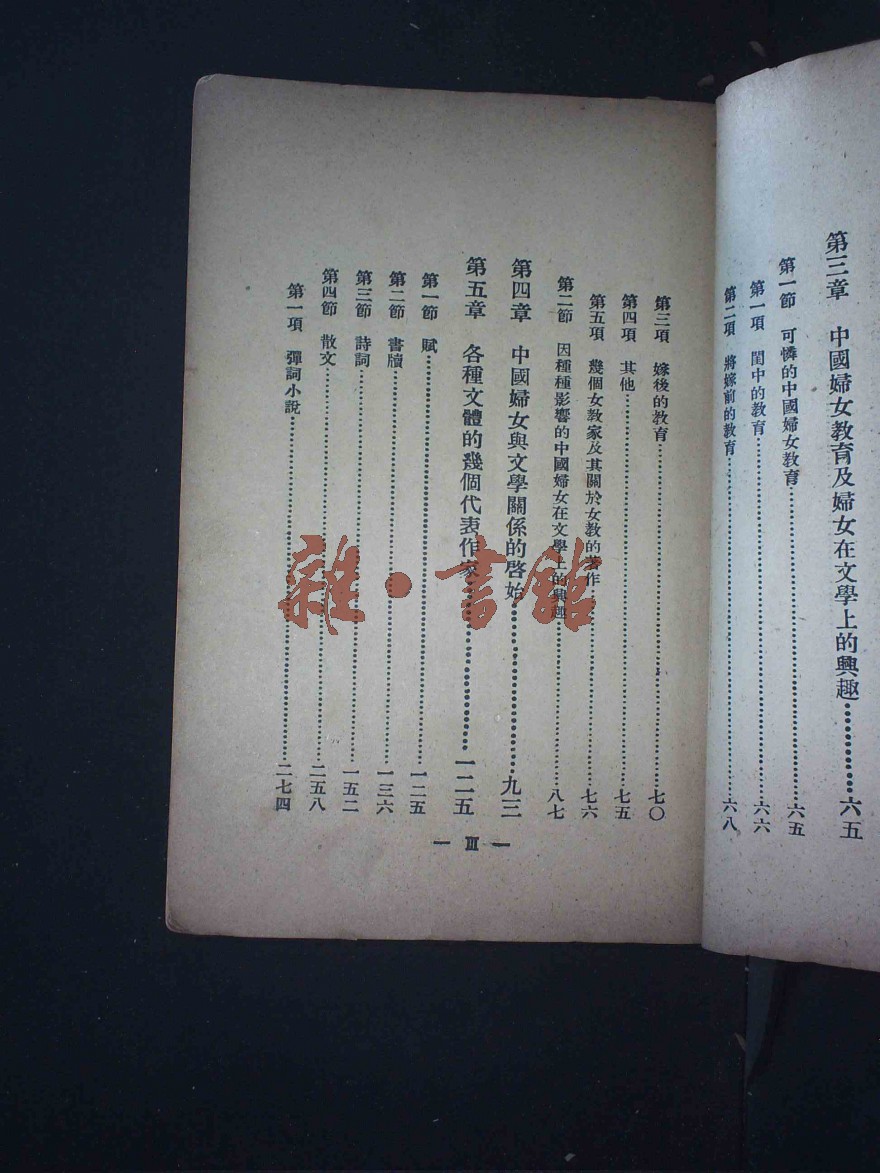 第三章 中國婦女教育及婦女在文學上的興趣……………六五
第一節 可憐的中國婦女教育……………六五
第一項 閨中的教育……………六六
第二項 將嫁前的教育……………六八
第三項 嫁後的教育……………七〇
第四項 其他……………七五
第五項 幾個女教家及其關於女教的著作……………七六
第二節 因種種影響的中國婦女在文學上的興趣……………八七
第四章 中國婦女與文學關係的啓始……………九三
第五章 各種文體的幾個代表作家……………一二五
第一節 賦……………一二五
第二節 書牘……………一三六
第三節 詩詞……………一五二
第四節 散文……………二五八
第一項 彈詞小說……………二七四
— III —
雜·書館